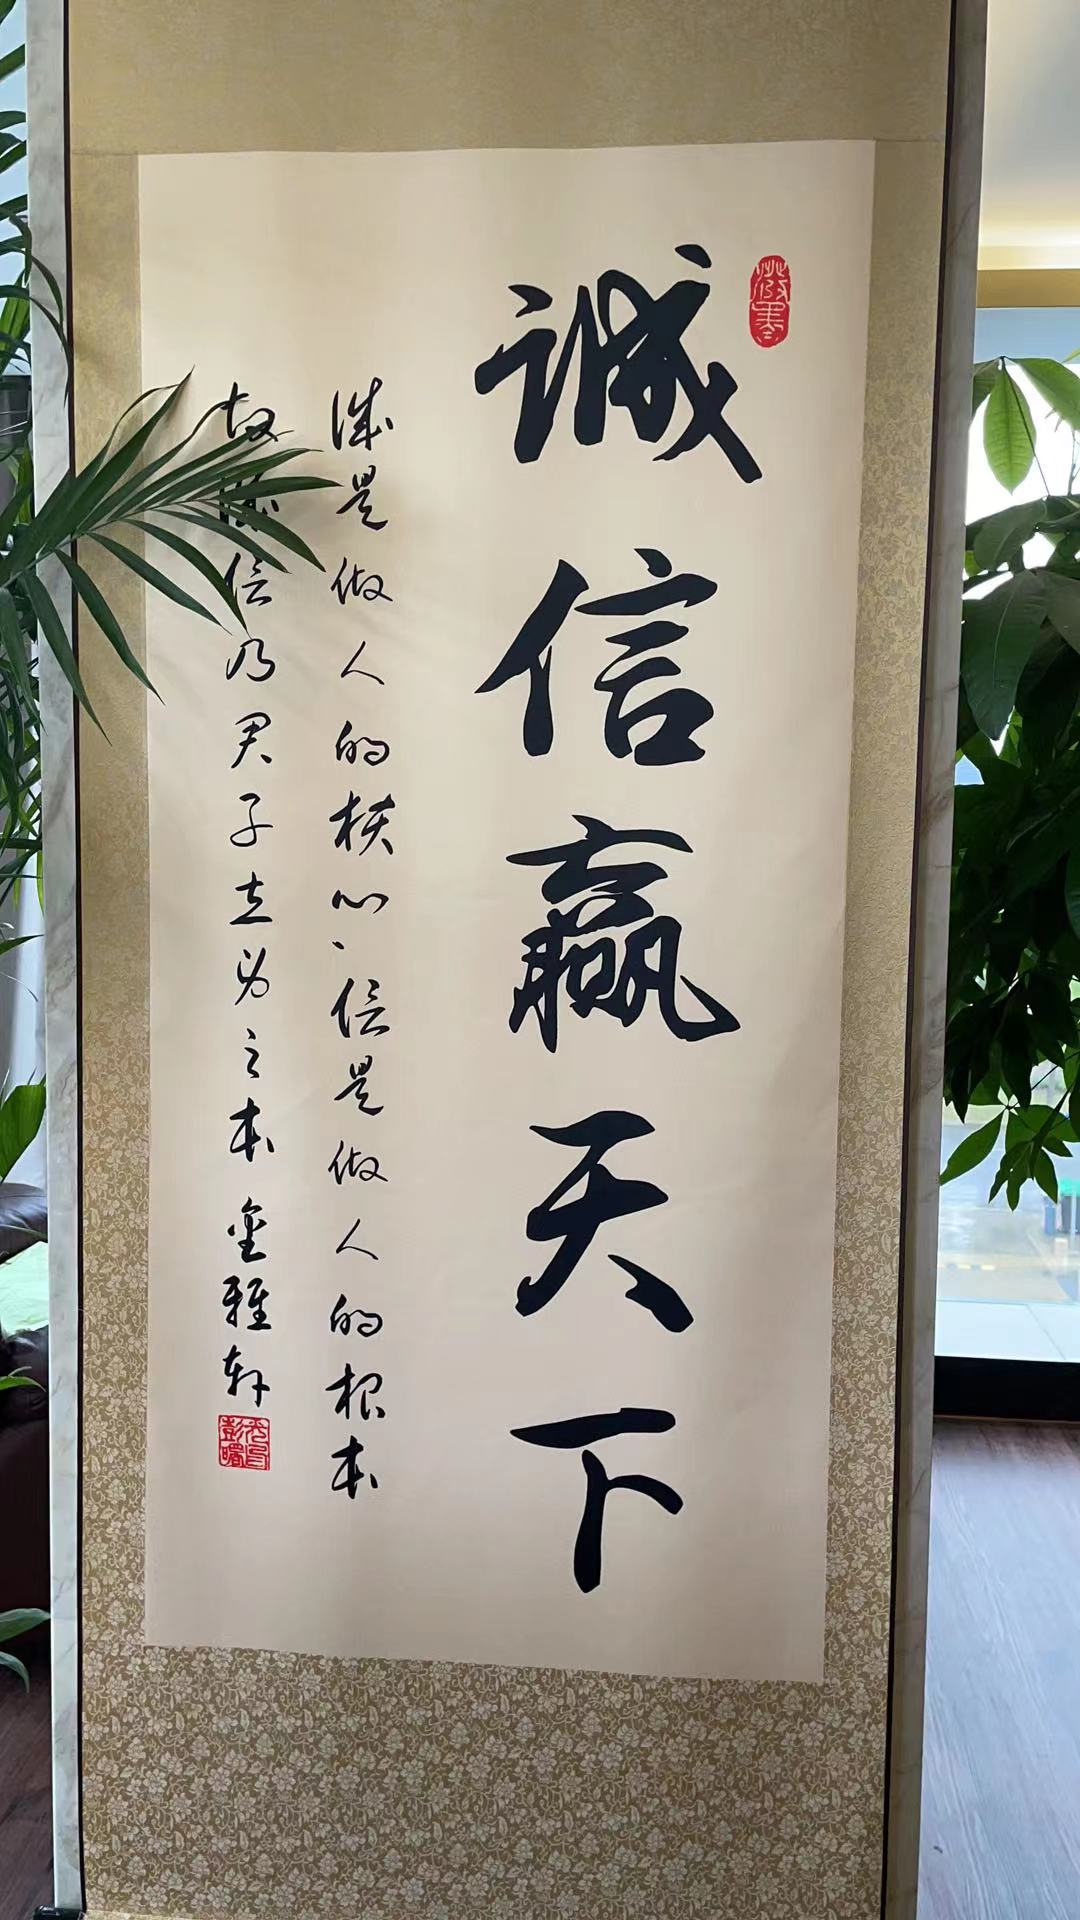 誠信赢天下
诚是做人的核心、信是做人的根本
故诚信乃君子立身之本 金雅轩